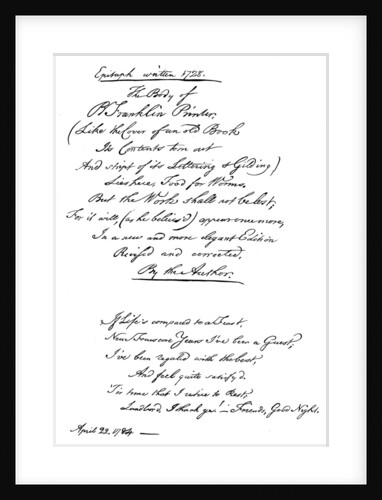 Epitaph written 1728.
The Body of
B Franklin Printer,
(Like the Cover of an old Book
Its Contents torn out
And stript of its Lettering & Gilding)
Lies here, Food for Worms.
But the Work shall not be lost;
For it will, (as he believ'd) appear once more,
In a new and more elegant Edition
Revised and corrected,
By the Author.
If Life's compared to a Feast,
Near Fourscore Years I've been a Guest;
I've been regaled with the best,
And feel quite satisfyd.
'Tis time that I retire to Rest;
Landlord, I thank ye! — Friends, Good Night.
April 22. 1784 —